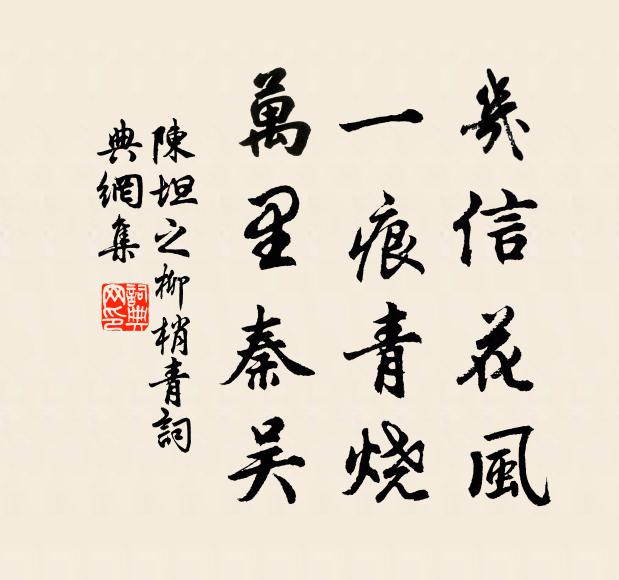 幾信花風
一痕青燒
萬里秦吴
陳坦之柳梢青詞
典網集
詞典網印